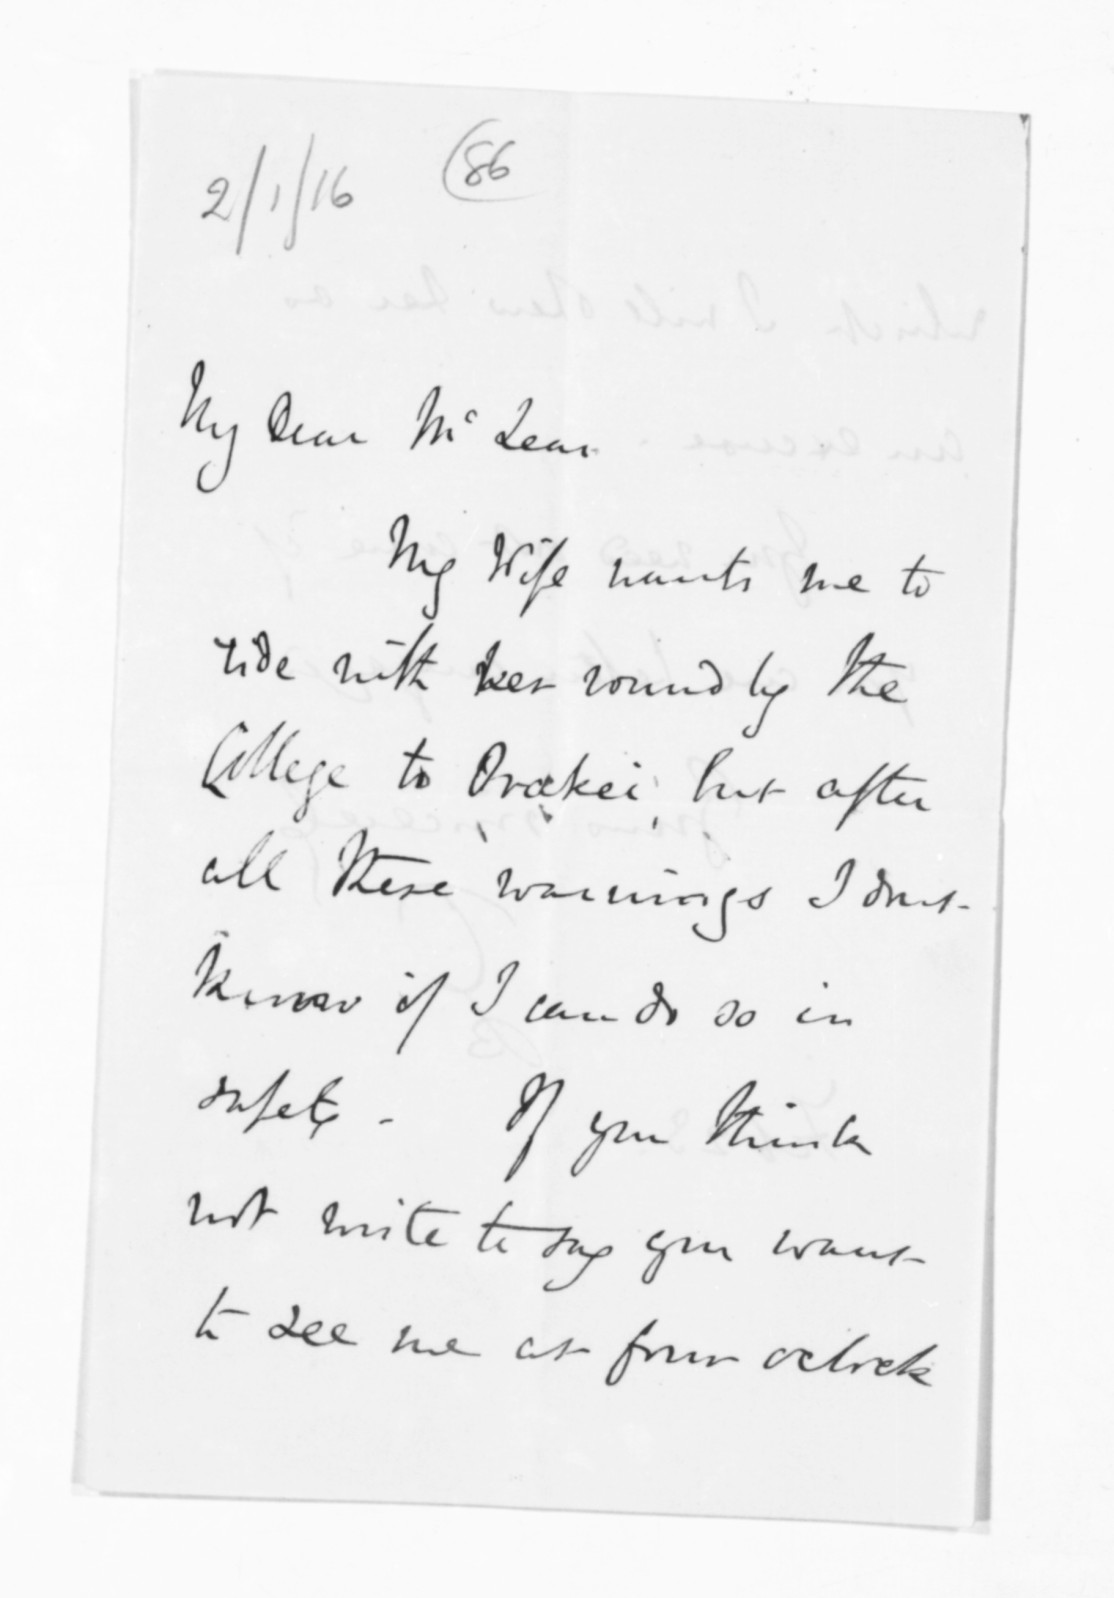 2/1/16 (86
My Dear McLean
My Wife wants me to
ride with her round by the
College to Orakei, but after
all these warnings I dont
know if I can do so in
safety - If you think
not write to say you want
to see me at four oclock